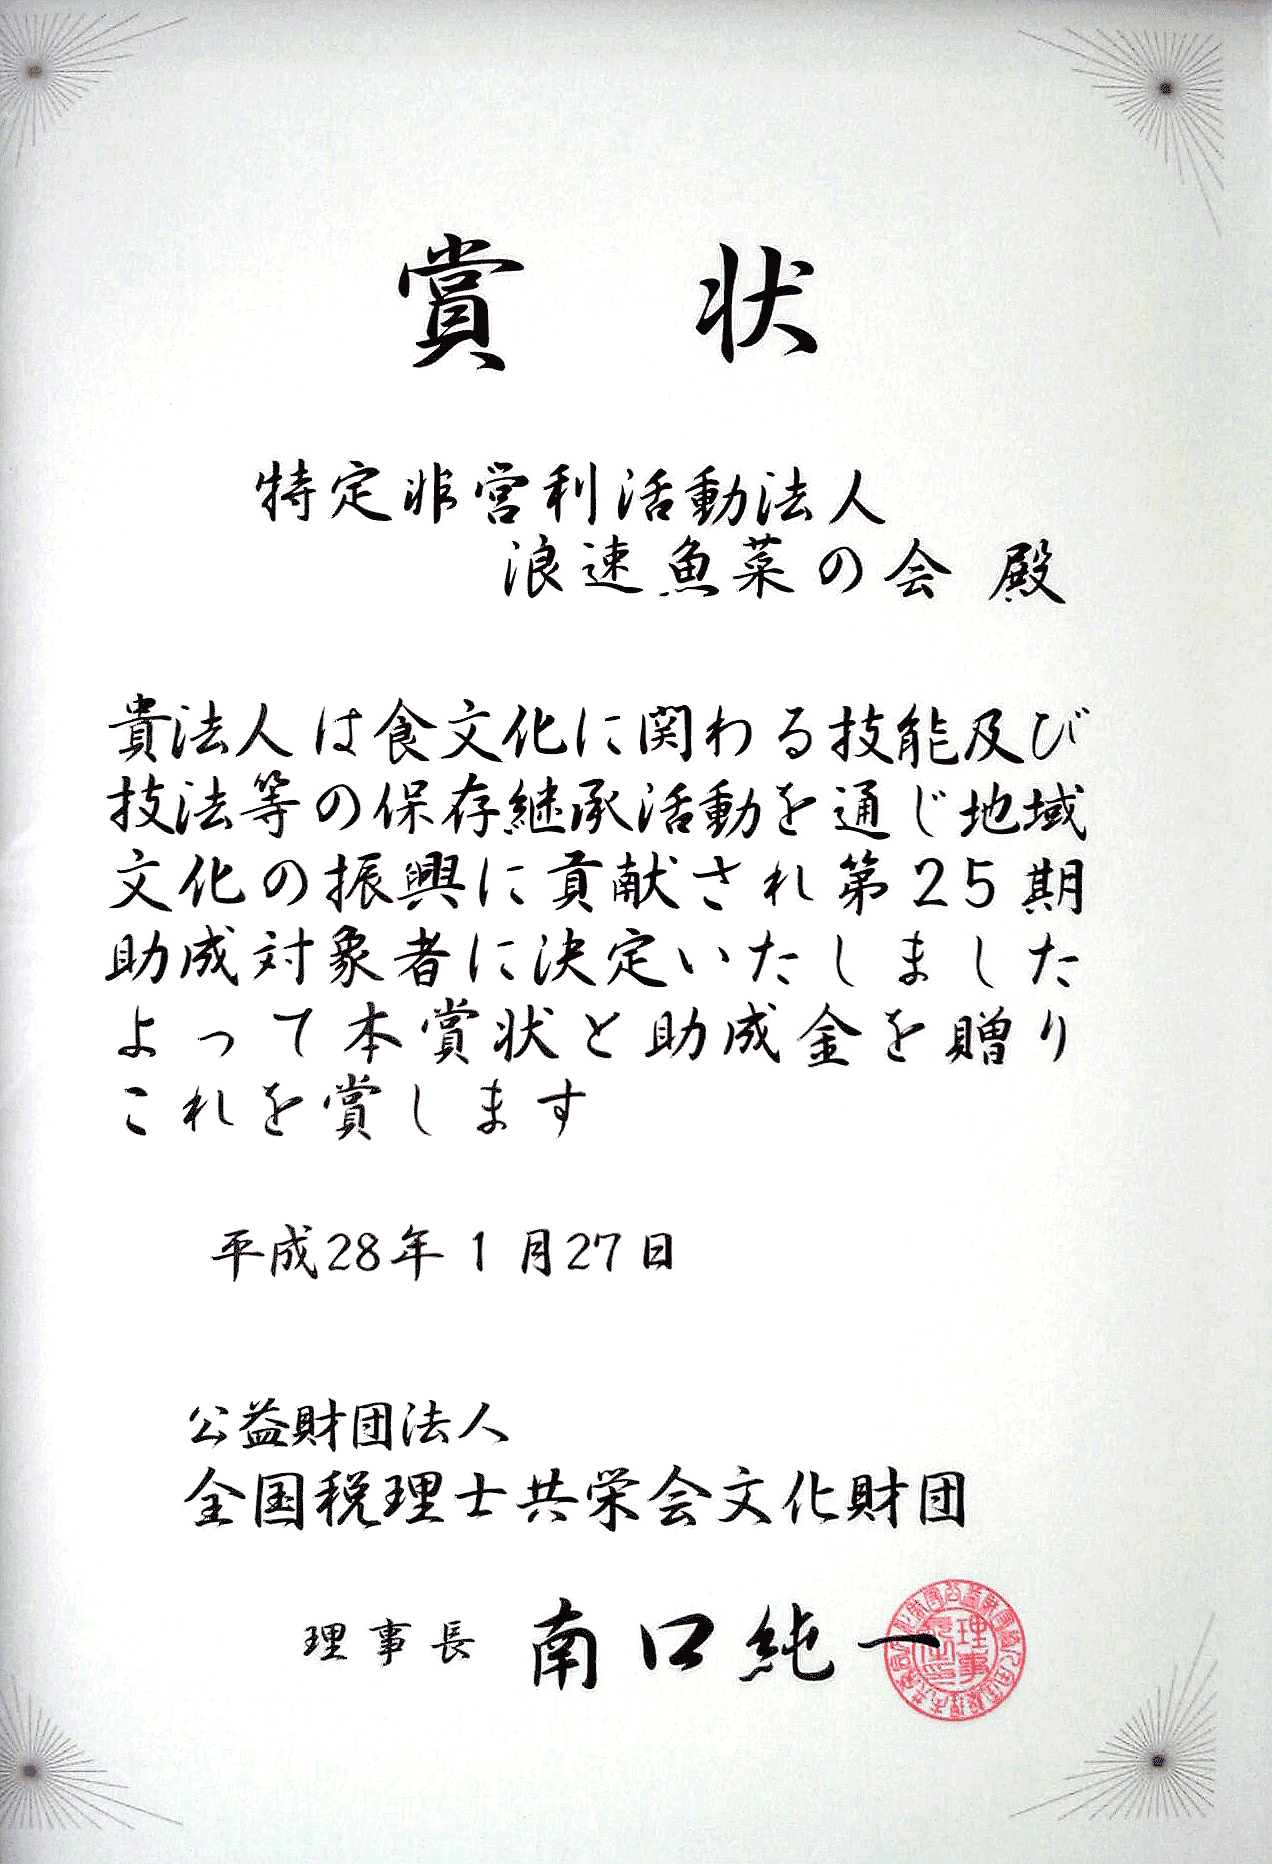 賞状
特定非営利活動法人
浪速魚菜の会 殿
貴法人は食文化に関わる技能及び
技法等の保存継承活動を通じ地域
文化の振興に貢献され第25期
助成対象者に決定いたしました
よって本賞状と助成金を贈り
これを賞します
平成28年1月27日
公益財団法人
全国税理士共栄会文化財団
理事長 南口純一